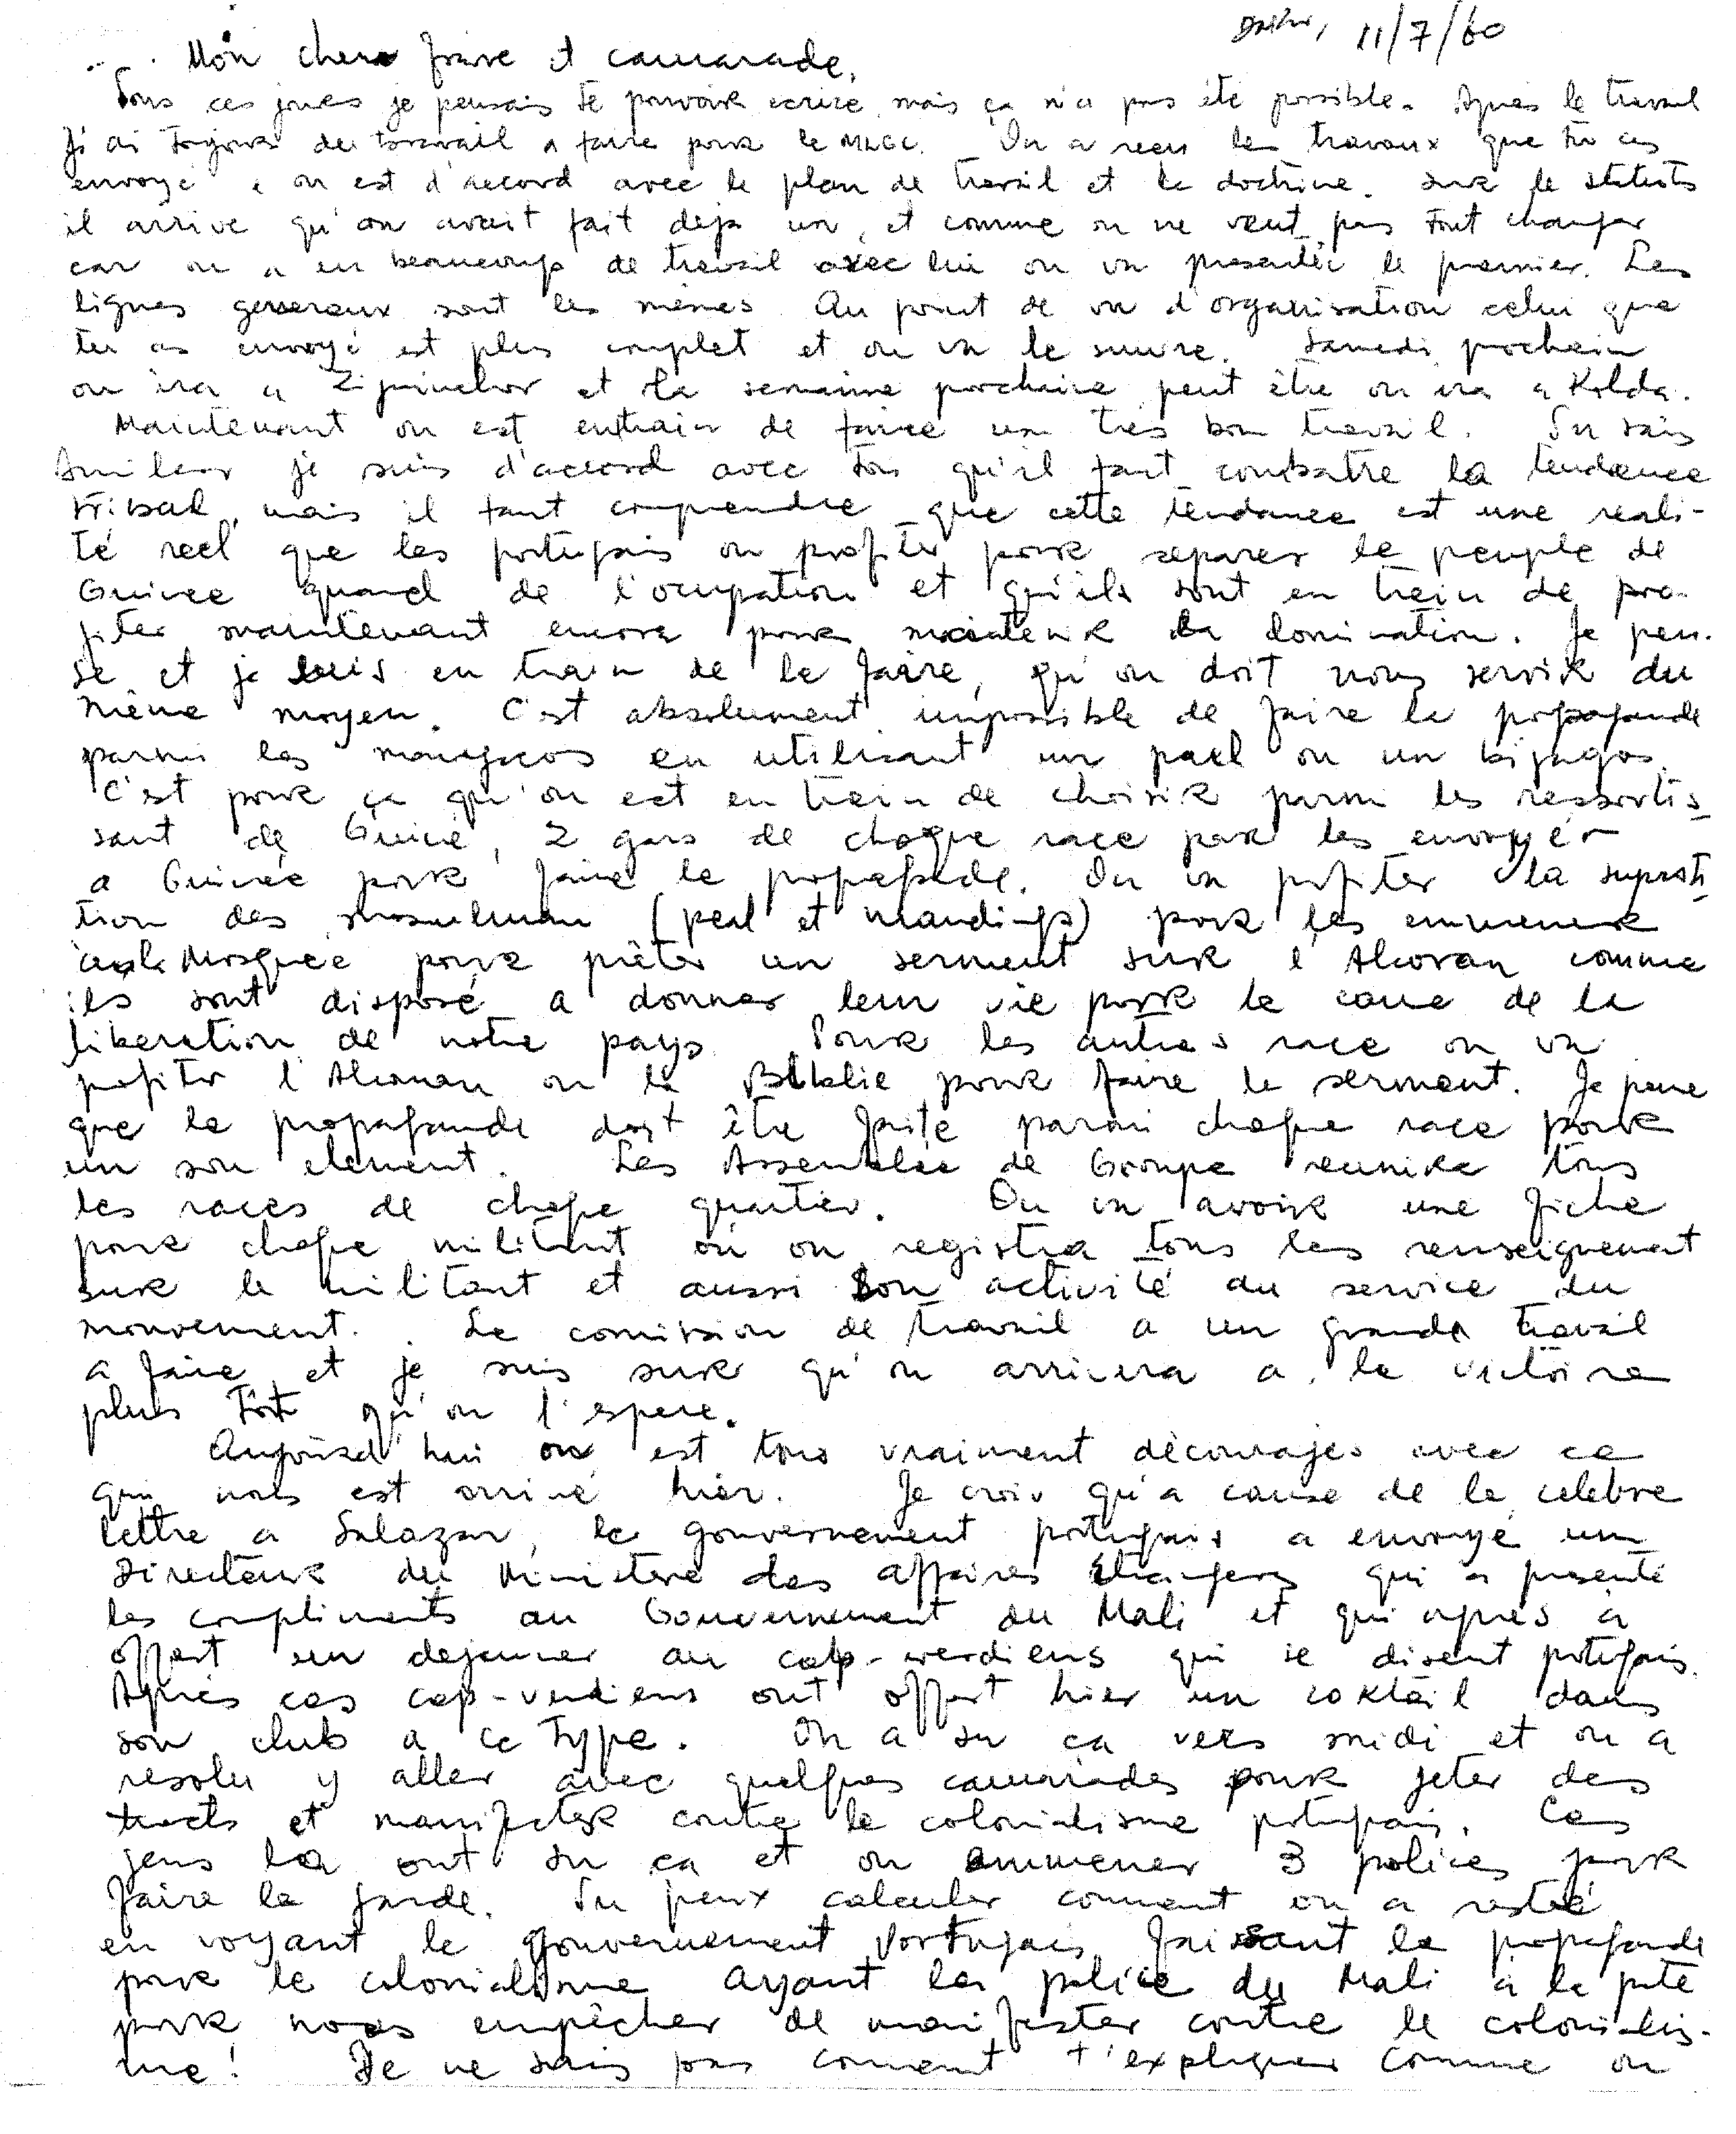 Dakar, 11/7/60
Mon cher fraire et camarade,
Tous ces jours je pensais te pouvoir ecrire mais ça n'a pas été possible. Apres le travail
J'ai toujours du travail a faire pour le MLGC. On a reçu les travaux que tu as
envoyé e on est d'accord avec le plan de travail et le doctrine. Sur le statuts
il arrive qu'on avait fait deja un, et comme on ne veut pas tout changer
car on a eu beaucoup de travail avec lui on va presenter le premier. Les
lignes generaux sont les mêmes Au point de vu d'organisation celui que
tu as envoyé est plus complet et on va le suivre. Samedi prochain
on ira a Ziguinchor et la semaine prochaine peut être on ira a Kolda.
Maintenant on est entrain de faire un très bon travail. Tu sais
Amilcar je suis d'accord avec toi qu'il faut combatre la tendence
tribal, mais il faut comprendre que cette tendance est une reali-
té reel que les portugais on profiter pour separer le peuple de
Guinee quand de l'ocupation et qu'ils sont en train de pro-
fiter maintenant encore pour maintenir la domination. Je pen-
se et je suis en train de le faire, qu'on doit nous servir du
même moyen. C'est absolument impossible de faire la propagande
parmi les manjacos en utilisant un pael ou un bijagos.
C'est pour ça qu'on est en train de choisir parmi les ressortis-
sant de Guiné, 2 gars de chaque race pour les envoyér
a Guinée pour faire le propagande. On va profiter la supersti-
tion des musulman (peal et mandinga) pour les emmener
a la Mosquée pour prêter un serment sur l'Alcoran comme
ils sont disposé a donner leur vie pour le cause de la
liberation de notre pays. Pour les autres race on va
profiter l'Alcoran ou la Biblie pour faire le serment. Je pense
que le propagande doit être faite parmi chaque race pour
un son element. Les Assemblée de Groupe reunira tous
les races de chaque quartier. On va avoir une fiche
pour chaque militant où on registra tous les renseignement
sur le militant et aussi son activité au service du
mouvement. Le comission de travail a un grande travail
a faire et je suis sur qu'on arrivera a la victoire
plus tôt qu'on l'espere.
Aujourd'hui on est tous vraiment découragés avec ce
qui nous est arrivé hier. Je crois qu'a cause de le celebre
lettre a Salazar, le gouvernement portugais a envoyé un
Directeur du Ministere des affaires étrangers qui a presenté
les compliments au Gouvernement du Mali et qui apres a
offert un dejeuner au cap-verdiens qui se disent portugais.
Apres ces cap-verdiens ont offert hier un coktail dans
son club a ce type. On a su ça vers midi et on a
resolu y aller avec quelques camarades pour jeter des
tracts et manifester contre le colonialisme portugais. Ces
gens la ont su ça et on emmener 3 polices pour
faire la garde. Tu peux calculer coment on a resté
en voyant le gouvernement portugais faisant le propagande
pour le colonialisme ayant les police du Mali a la porte
pour nous empêcher de manifester contre le colonialis-
me! Je ne sais pas coment t'expliquer comme on